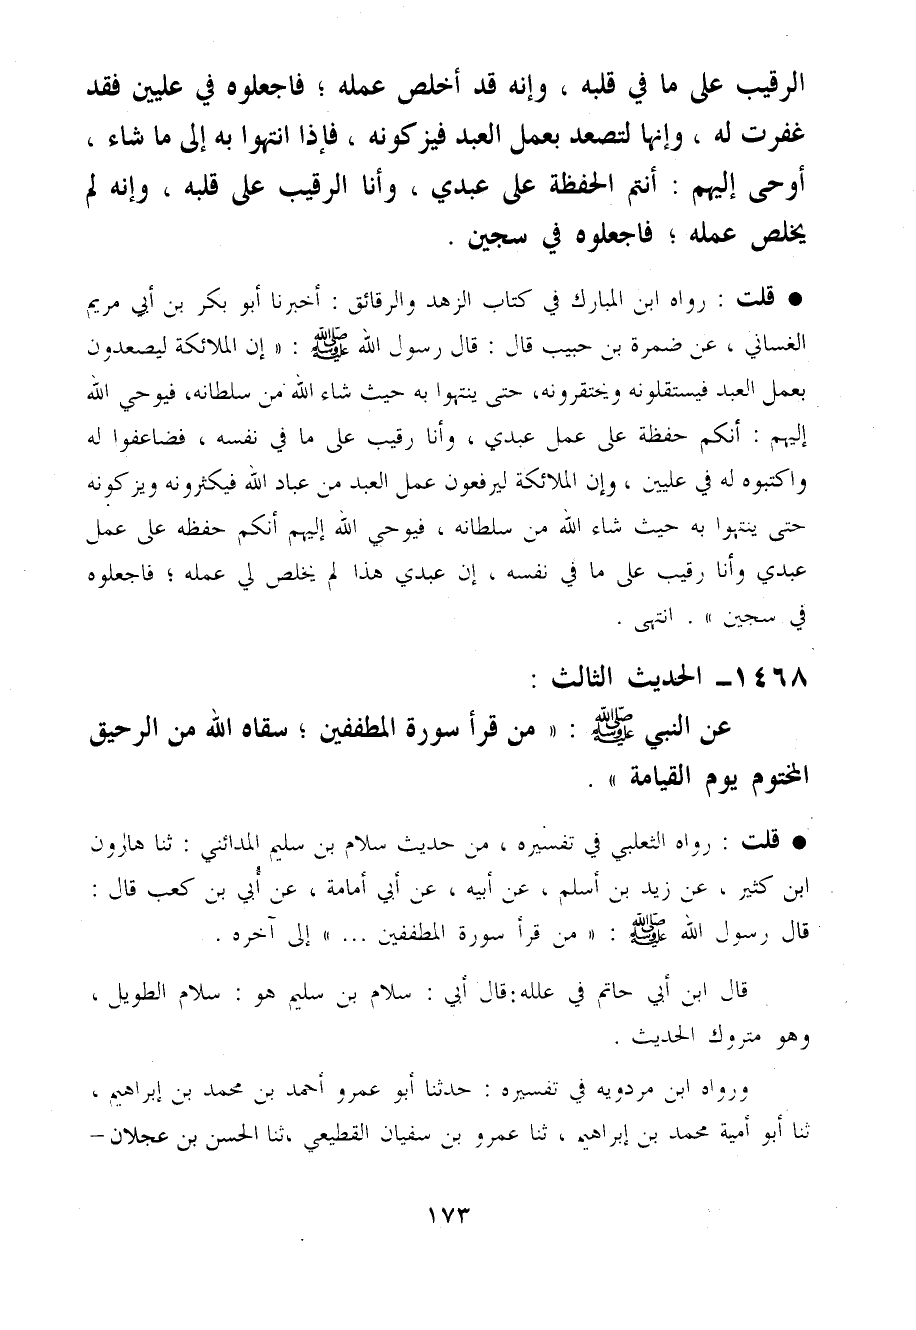 الرقيب على ما في قلبه ، وإنه قد أخلص عمله ؛ فاجعلوه في عليين فقد
غفرت له ، وإنها لتصعد بعمل العبد فيزكونه ، فإذا انتهوا به إلى ما شاء ،
أوحى إليهم : أنتم الحفظة على عبدي ، وأنا الرقيب على قلبه ، وإنه لم
يخلص عمله ؛ فاجعلوه في سجين .
● قلت : رواه ابن المبارك في كتاب الزهد والرقائق : أخبرنا أبو بكر بن أبي مريم
الغساني ، عن ضمرة بن حبيب قال : قال رسول الله ﷺ : « إن الملائكة ليصعدون
بعمل العبد فيستقلونه ويحتقرونه، حتى ينتهوا به حيث شاء الله من سلطانه، فيوحي الله
إليهم : أنكم حفظة على عمل عبدي ، وأنا رقيب على ما في نفسه ، فضاعفوا له
واكتبوه له في عليين ، وإن الملائكة ليرفعون عمل العبد من عباد الله فيكثرونه ويزكونه
حتى ينتهوا به حيث شاء الله من سلطانه ، فيوحي الله إليهم أنكم حفظه على عمل
عبدي وأنا رقيب على ما في نفسه ، إن عبدي هذا لم يخلص لي عمله ؛ فاجعلوه
في سجين » . انتهى .
١٤٦٨ـ الحديث الثالث :
عن النبي ﷺ : « من قرأ سورة المطففين ؛ سقاه الله من الرحيق
المختوم يوم القيامة » .
● قلت : رواه الثعلبي في تفسيره ، من حديث سلام بن سليم المدائني : ثنا هارون
ابن كثير ، عن زيد بن أسلم ، عن أبيه ، عن أبي أمامة ، عن أُبي بن كعب قال :
قال رسول الله ﷺ : « من قرأ سورة المطففين ... » إلى آخره .
قال ابن أبي حاتم في علله:قال أبي : سلام بن سليم هو : سلام الطويل ،
وهو متروك الحديث .
ورواه ابن مردويه في تفسيره : حدثنا أبو عمرو أحمد بن محمد بن إبراهيم ،
ثنا أبو أمية محمد بن إبراهيم ، ثنا عمرو بن سفيان القطيعي ،ثنا الحسن بن عجلان –
١٧٣